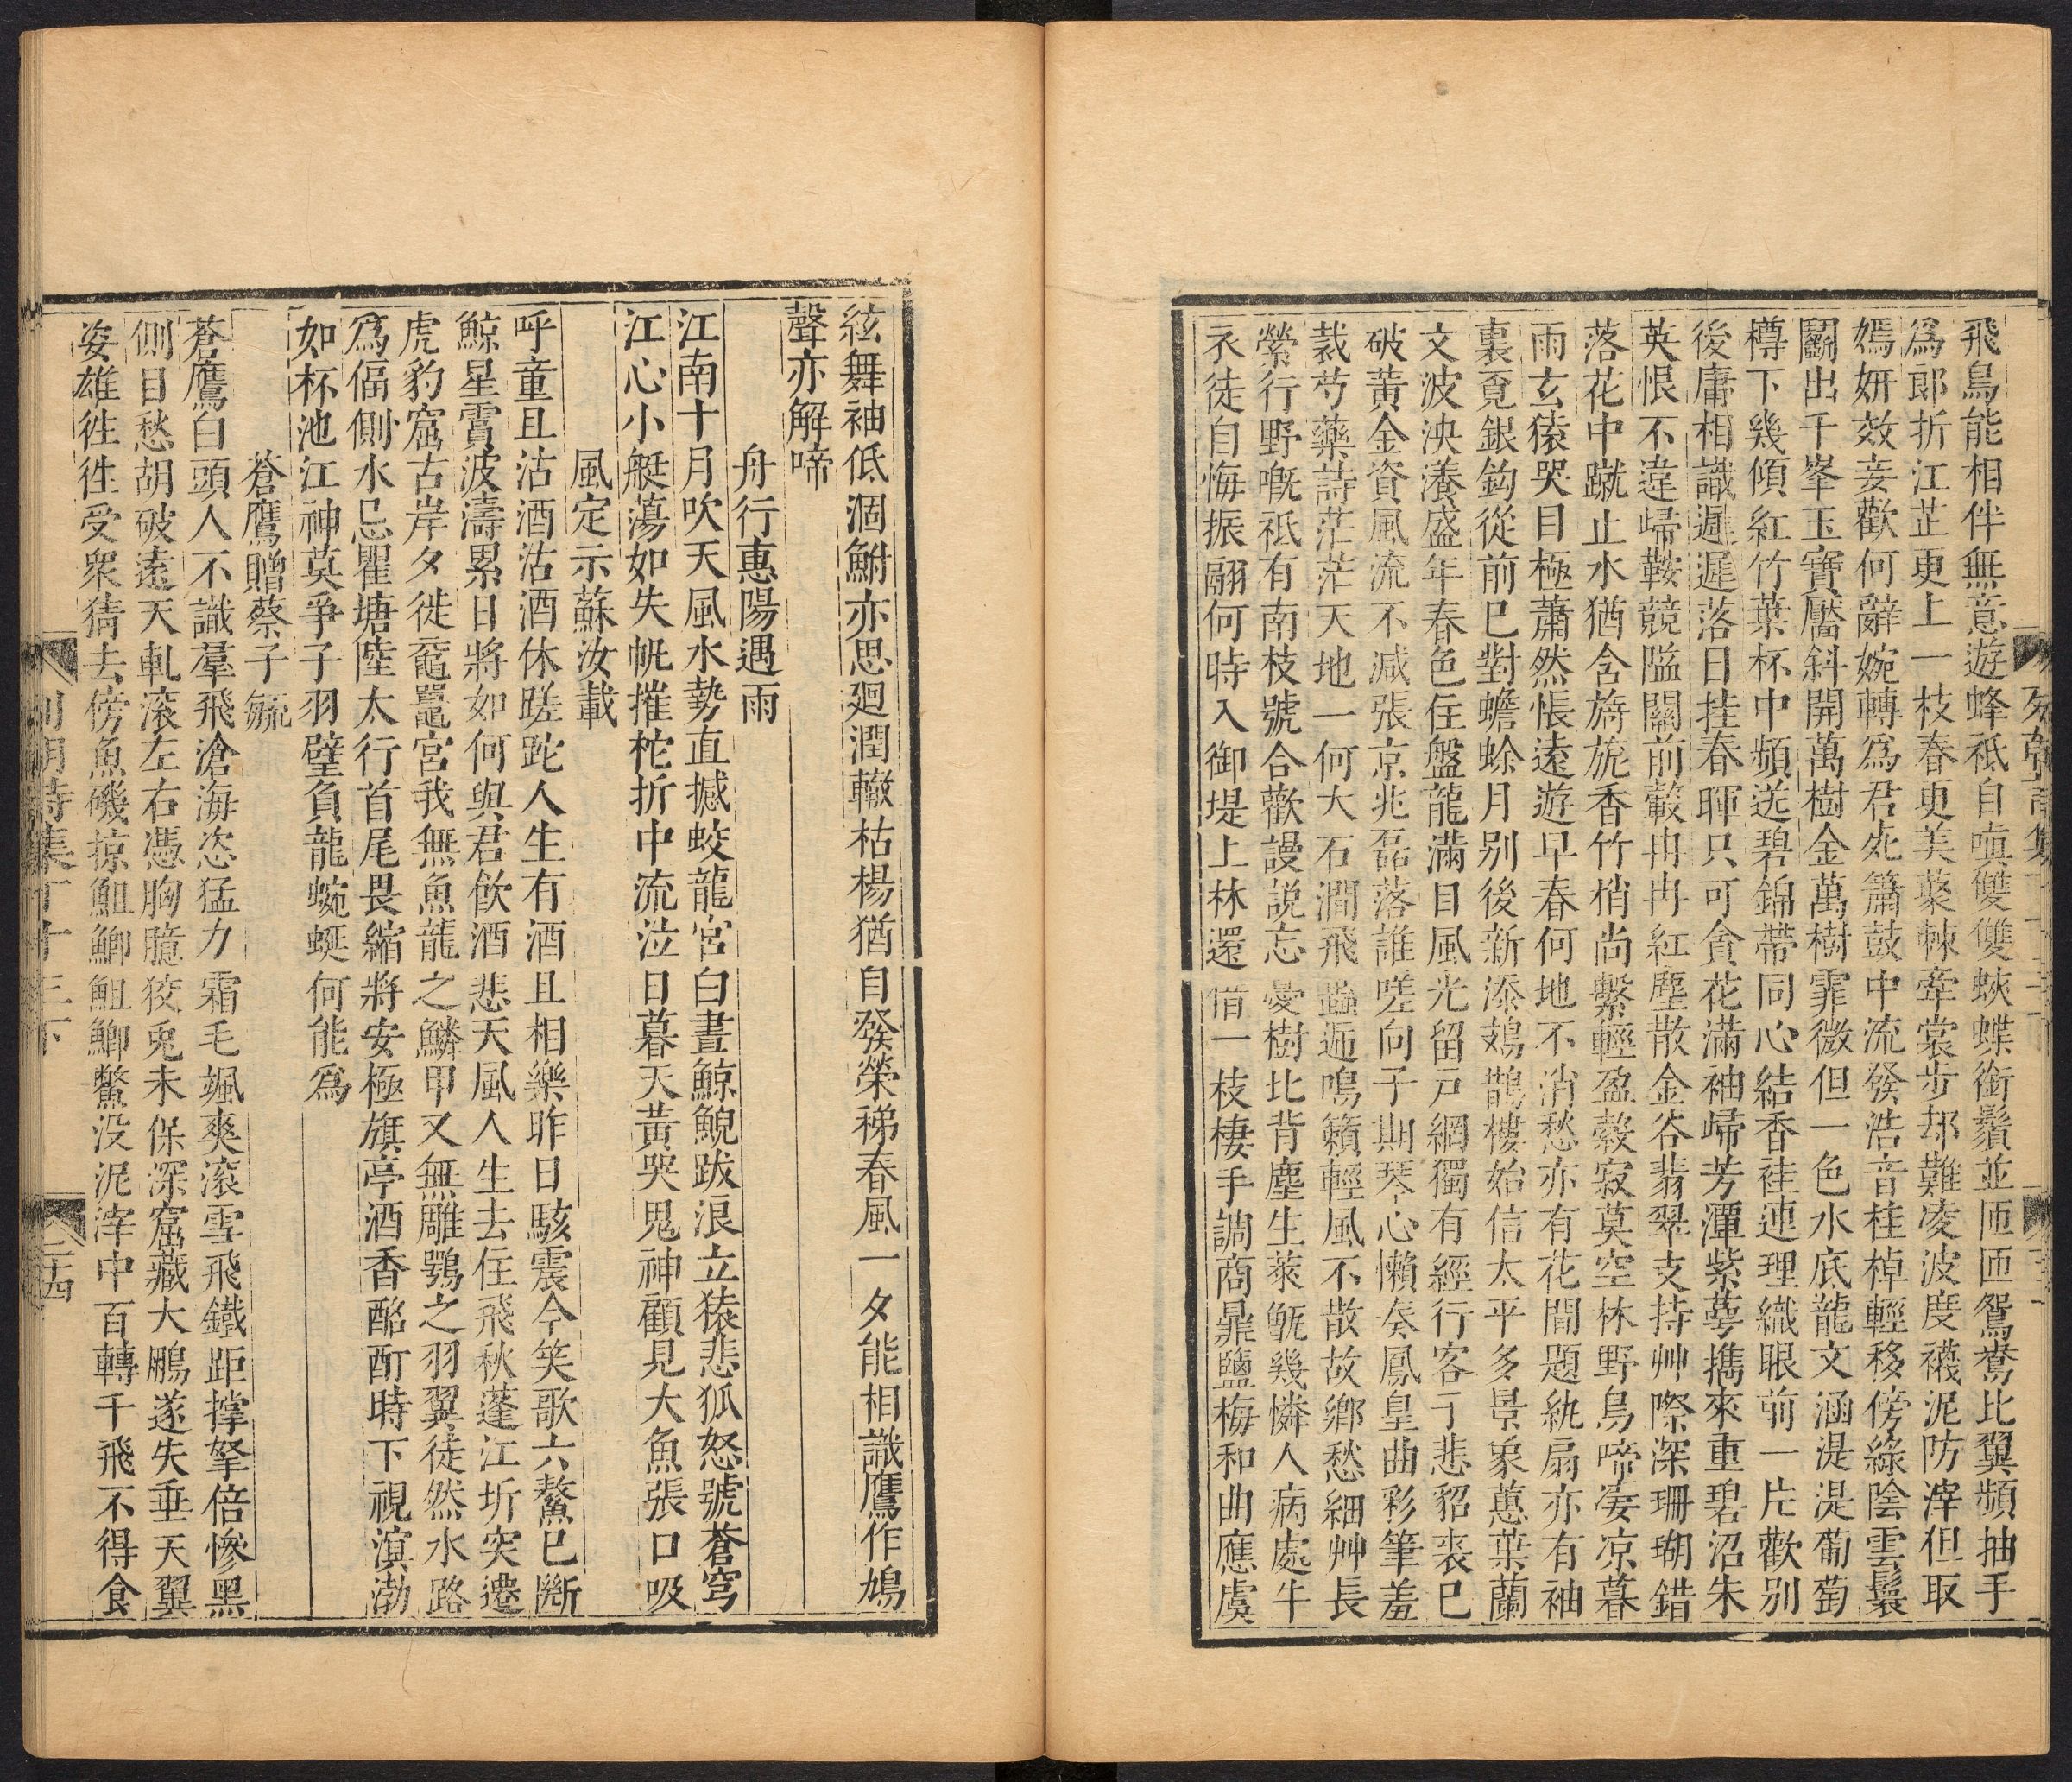 飛鳥能相伴無意遊蜂祗自嗔雙雙蛺蝶銜鬚並匝匝鴛鴦比翼頻抽手
爲郎折江芷更上一枝春更美蘂棘牽裳步却難凌波度襪泥防滓但取
嫣妍效妾歡何辭婉轉爲君死簫鼓中流發浩音桂棹輕移傍綠陰雲鬟
鬭出千峯玉寶靨斜開萬樹金萬樹霏微但一色水底龍文涵湜湜葡萄
樽下幾傾紅竹葉杯中頻送碧錦帶同心結香袿連理織眼前一片歡別
後庸相識遲遲落日挂春暉只可貪花滿袖歸芳潭紫蕚擕來重碧沼朱
英恨不違歸鞍競隘關前轂冉冉紅塵散金谷翡翠支持艸際深珊瑚錯
落花中蹴止水猶含旖旎香竹梢尚繫輕盈縠寂莫空林野鳥啼凄凉暮
雨玄猿哭目極蕭然悵遠遊早春何地不消愁亦有花間題紈扇亦有袖
裏覔銀鈎從前巳對蟾蜍月別後新添鳷鵲樓始信太平多景象蕙葉蘭
文波泱瀁盛年春色在盤龍滿目風光留戸網獨有經行客子悲貂裘巳
破黃金資風流不減張京兆磊落誰嗟向子期琴心懶奏鳳皇曲彩筆羞
裁芍藥詩茫茫天地一何大石澗飛蟲逅鳴籟輕風不散故鄉愁細艸長
縈行野嘅祗有南枝號合歡謾説忘憂樹比背塵生萊甑幾憐人病處牛
衣徒自悔振翮何時入御堤上林還借一枝棲手調商鼎鹽梅和曲應虞
絃舞袖低涸鮒亦思廻潤轍枯楊猶自發榮稊春風一夕能相識鷹作鳩
聲亦解啼
舟行惠陽遇雨
江南十月吹天風水勢直撼蛟龍宮白晝鯨鯢跋浪立猿悲狐怒號蒼穹
江心小艇蕩如失帆摧柁折中流泣日暮天黃哭鬼神顧見大魚張口吸
風定示蘇汝載
呼童且沽酒沽酒休蹉跎人生有酒且相樂昨日駭震今笑歌六鰲巳斷
鯨星霣波濤累日將如何與君飲酒悲天風人生去住飛秋蓬江圻突遷
虎豹窟古岸夕徙黿鼉宮我無魚龍之鱗甲又無雕鶚之羽翼徒然水路
爲偪側水忌瞿塘陸太行首尾畏縮將安極旗亭酒香酩酊時下視溟渤
如杯池江神莫爭子羽璧負龍蜿蜒何能爲
蒼鷹贈蔡子毓
蒼鷹白頭人不識羣飛滄海恣猛力霜毛颯爽滚雪飛鐵距撑拏倍慘黑
側目愁胡破遠天軋滚左右憑胸臆狡兎未保深窟藏大鵬遂失垂天翼
姿雄徃徃受衆猜去傍魚磯掠鮙鯽鮙鯽鱉没泥滓中百轉千飛不得食
列朝詩集丁十三下
二十四